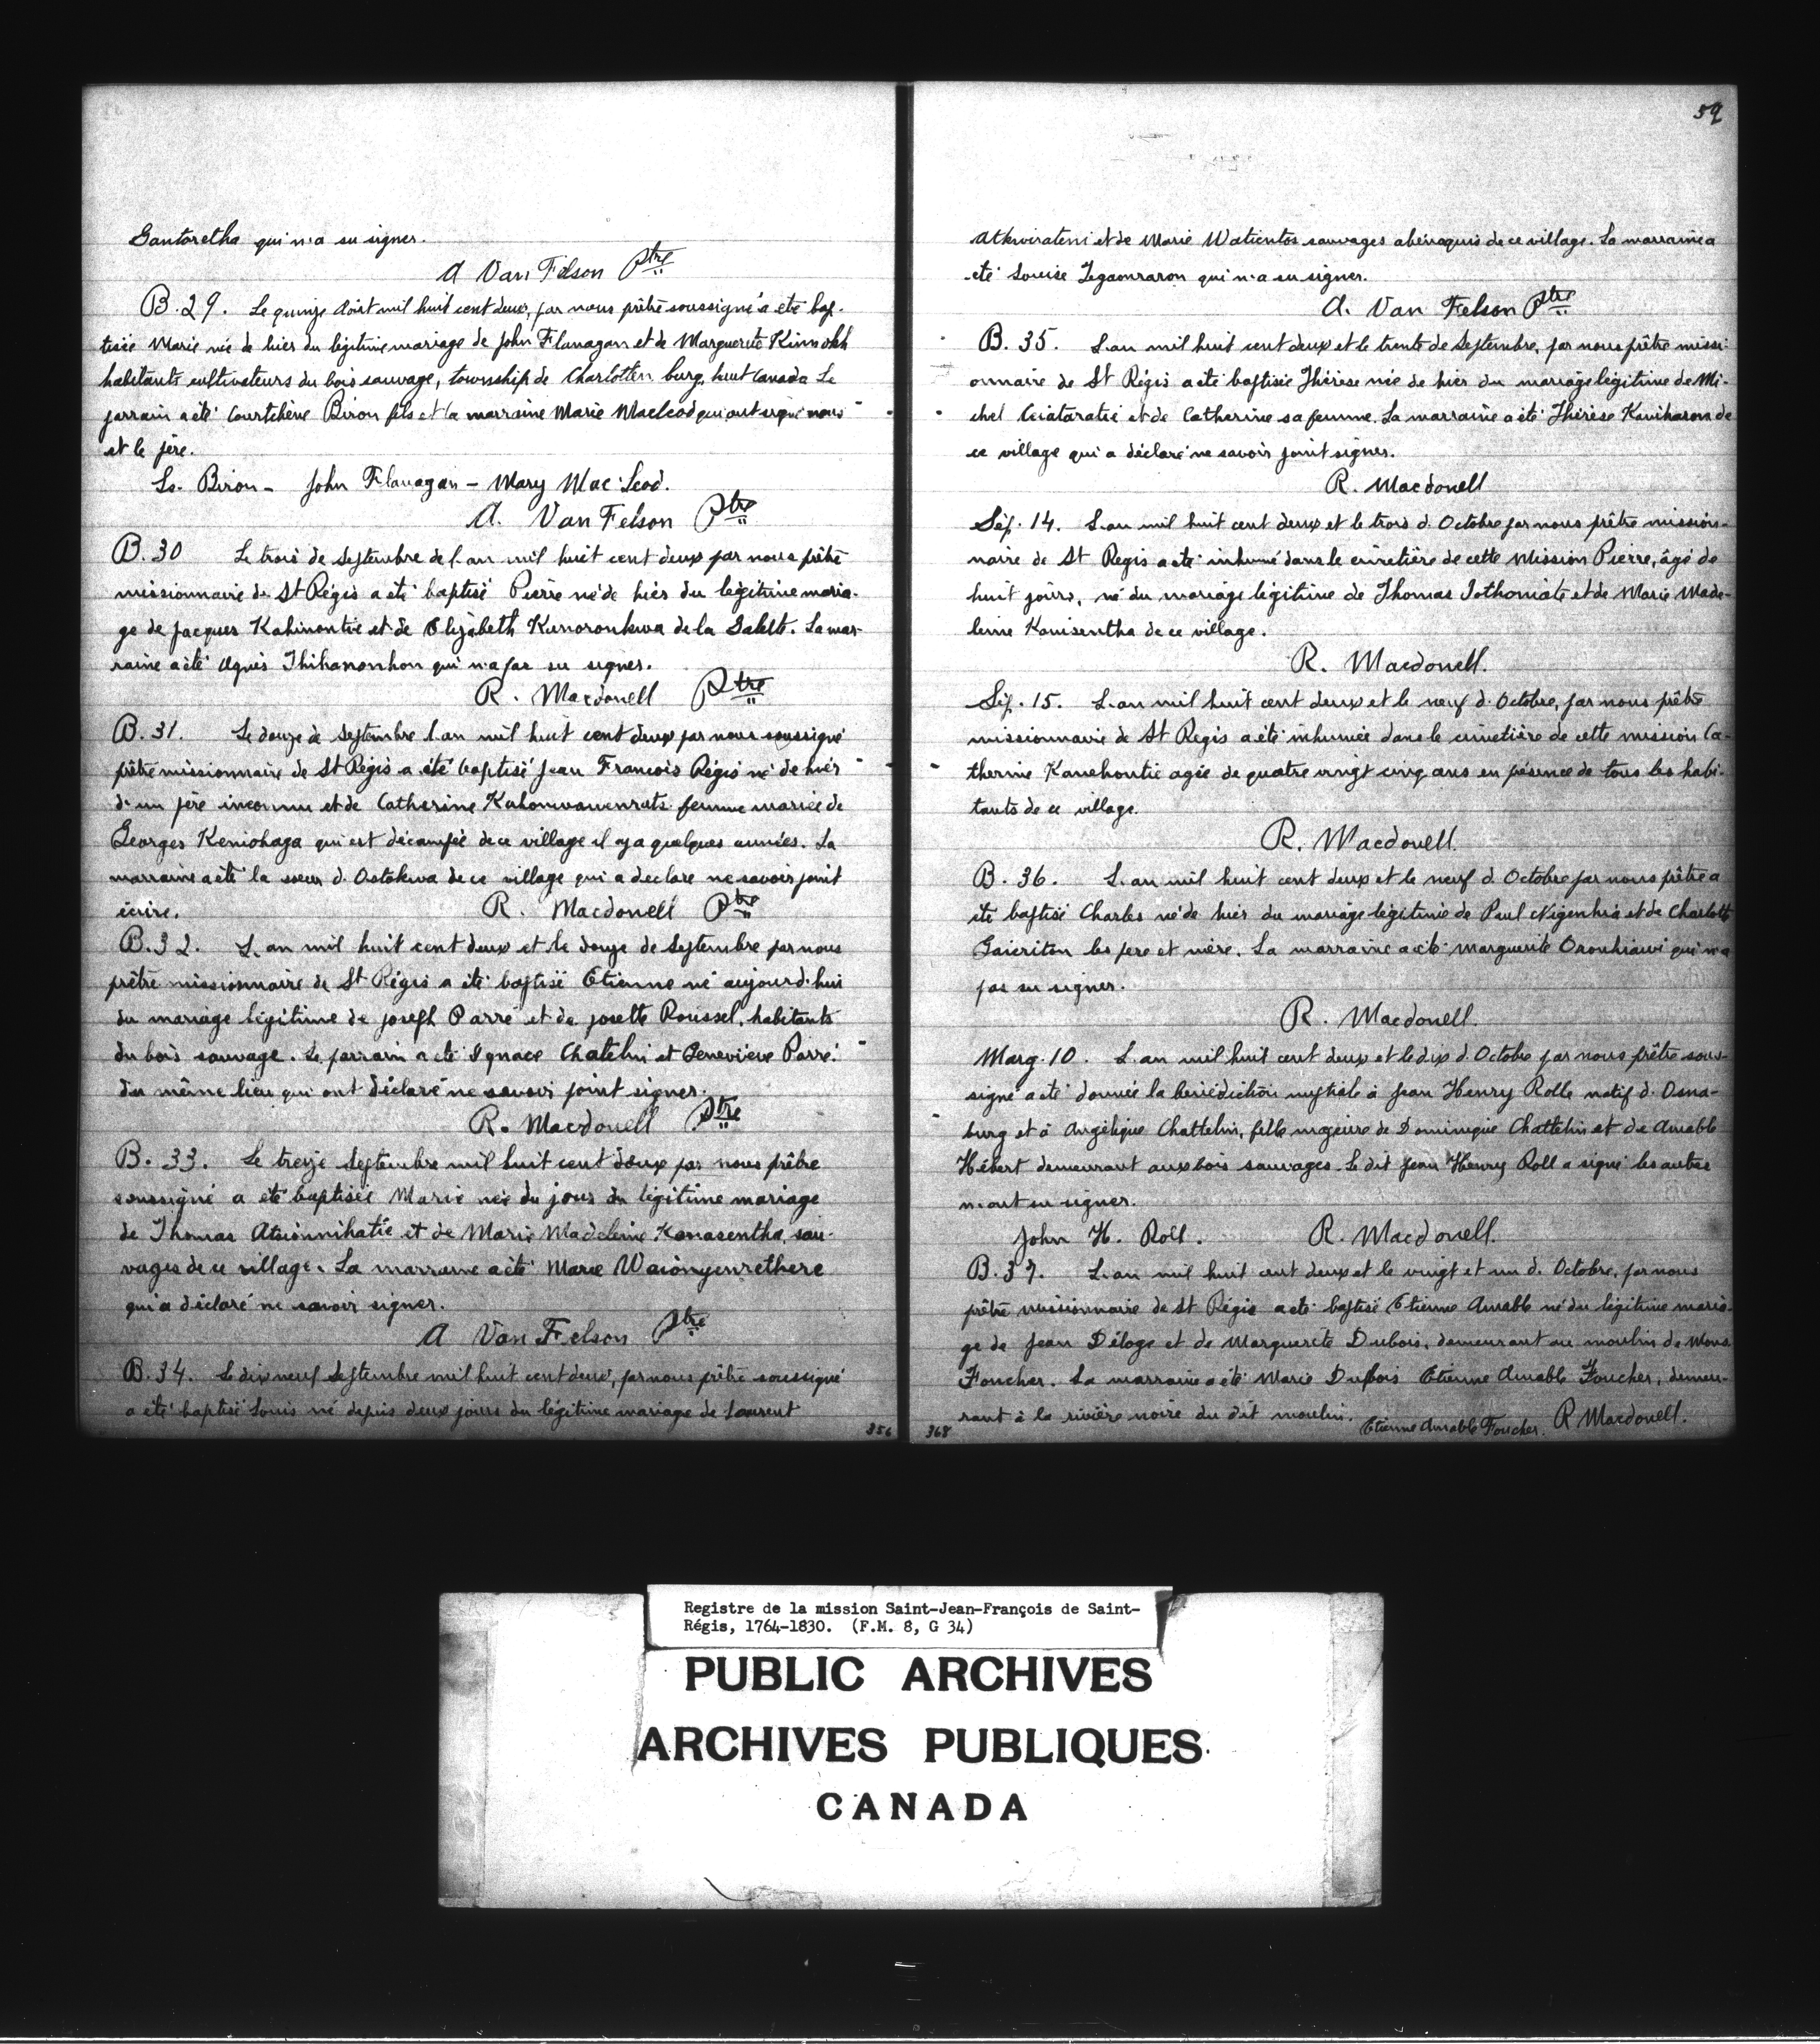 Gantoretha qui n'a su signer.
A Van Felson Ptre
B. 29. Le quinze Aoüt mil huit cent deux, par nous prêtre soussigné a été bap-
tisée Marie née de hier du légitime mariage de John Flanagan et de Marguerite
habitants cultivateurs du bois sauvage, township de Charlotten burg, haut Canada Le
parrain a été Courtchène Biron fils et la marraine Marie Macleod qui ont signé nous
et le père.
Ls. Biron - John Flanagan - Mary Mac Leod.
A. Van Felson Ptre
B. 30 Le trois de Septembre de l'an mil huit cent deux par nous prêtre
missionnaire de St Régis a été baptisé Pierre né de hier du légitime maria-
ge de Jacques Kahinontie et de Elizabeth Kanoronkwa de la Salete. La mar-
raine a été Agnès Thihanonhon qui n'a pas su signer.
R. Macdonell Ptre
B. 31. Le douze de Septembre l'an mil huit cent deux par nous soussigné
prêtre missionnaire de St Régis a été baptisé Jean François Régis né de hier
d'un père inconnu et de Catherine Kahonwawenrats femme mariée de
Georges Keniohaga qui est décampée de ce village il y a quelques années. La
marraine a été la soeur d'Ostakwa de ce village qui a déclaré ne savoir point
écrire. R. Macdonell Ptre
B. 32. L'an mil huit cent deux et le douze de Septembre par nous
prêtre missionnaire de St Régis a été baptisé Etienne né aujourd'hui
du mariage légitime de Joseph Parré et de Josette Roussel, habitants
du bois sauvage. Le parrain a été Ignace Chatelin et Geneviève Parré
du même lieu qui ont déclaré ne savoir point signer.
R. Macdonell Ptre
B. 33. Le treize Septembre mil huit cent deux par nous prêtre
soussigné a été baptisée Marie née du jour du légitime mariage
de Thomas Atsionnihatie et de Marie Madeleine Kanasentha, sau-
vages de ce village. La marraine a été Marie Waiongenrethere
qui a déclaré ne savoir signer.
A Van Felson Ptre
B. 34. Le dix neuf Septembre mil huit cent deux, par nous prêtre soussigné
a été baptisé Louis né depuis deux jours du légitime mariage de Laurent
356
59
Atkwirateni et de Marie Watientos sauvages abénaquis de ce village. La marraine a
été Louise Tegaonraron qui n'a su signer.
A. Van Felson Ptre
B. 35. L'an mil huit cent deux et le trente de Septembre, par nous prêtre missi-
onnaire de St Régis a été baptisée Thérèse née de hier du mariage légitime de Mi-
chel et de Catherine sa femme. La marraine a été Thérèse Kaniharon de
ce village qui a déclaré ne savoir point signer.
R. Macdonell
Sép. 14. L'an mil huit cent deux et le trois d'Octobre par nous prêtre mission-
naire de St Regis a été inhumé dans le cimetière de cette Mission Pierre, âgé de
huit jours, né du mariage légitime de Thomas Tothoniate et de Marie Made-
leine Kanisentha de ce village.
R. Macdonell.
Sép. 15. L'an mil huit cent deux et le neuf d'Octobre, par nous prêtre
missionnaire de St Regis a été inhumée dans le cimetière de cette mission Ca-
therine Kanehontie agée de quatre vingt cinq ans en présence de tous les habi-
tants de ce village.
R. Macdonell.
B. 36. L'an mil huit cent deux et le neuf d'Octobre par nous prêtre a
été baptisé Charles né de hier du mariage légitime de Paul Nigenhia et de Charlotte
Gaieriton les père et mère. La marraine a été Marguerite Oronhiawi qui n'a
pas su signer.
R. Macdonell.
Marg. 10. L'an mil huit cent deux et le dix d'Octobre par nous prêtre sous-
signé a été donnée la bénédiction nuptiale à Jean Henry Rolle natif d'Osna-
burg et à Angélique Chattelin, fille majeure de Dominique Chattelin et de Amable
Hébert demeurant aux bois sauvages. Le dit Jean Henry Roll a signé les autres
n'ont su signer.
John H. Roll. R. Macdonell.
B. 37. L'an mil huit cent deux et le vingt et un d'Octobre, par nous
prêtre missionnaire de St Régis a été baptisé Etienne Amable né du légitime maria-
ge de Jean Déloge et de Marguerite Dubois, demeurant au moulin de Mons
Foucher. La marraine a été Marie Dubois Etienne Amable Foucher, demeu-
rant à la rivière noire du dit moulin. Etienne Amable Foucher. R Macdonell.
368
Registre de la mission Saint-Jean-François de Saint-
Régis, 1764-1830. (F.M. 8, G 34)
PUBLIC ARCHIVES
ARCHIVES PUBLIQUES
CANADA